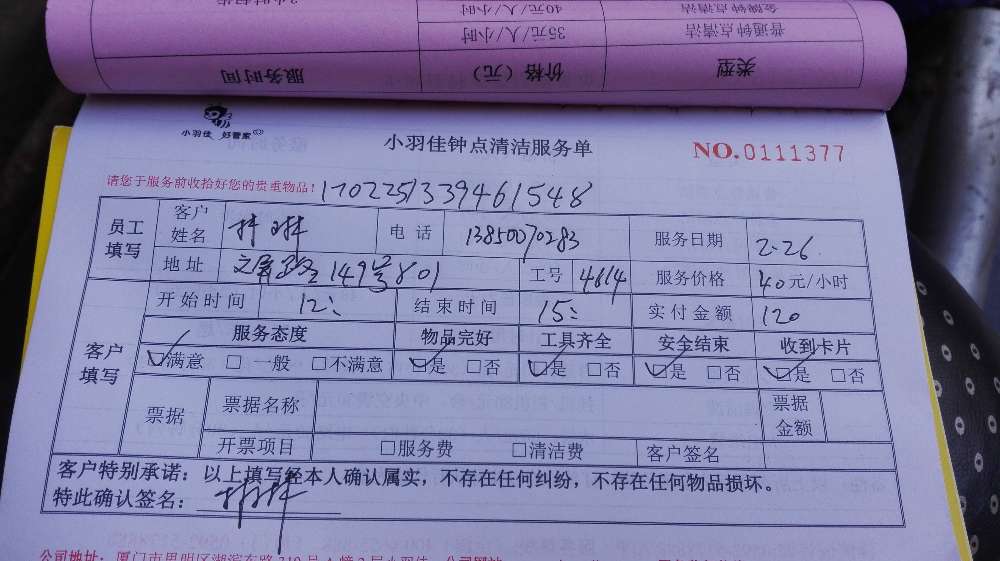 金牌钟点清洁 40元/人/小时
普通钟点清洁 35元/人/小时
类型 价格（元） 服务时间
小羽佳 好管家
小羽佳钟点清洁服务单
NO.0111377
请您于服务前收拾好您的贵重物品！
1702251339461548
员工填写 客户姓名 电话 13850070283 服务日期 2.26
地址 149号801 工号 4614 服务价格 40元/小时
开始时间 12: 结束时间 15: 实付金额 120
客户填写 服务态度 物品完好 工具齐全 安全结束 收到卡片
☑满意 □一般 □不满意 ☑是 □否 ☑是 □否 ☑是 □否 ☑是 □否
票据 票据名称 票据金额
开票项目 □服务费 □清洁费 客户签名
客户特别承诺：以上填写经本人确认属实，不存在任何纠纷，不存在任何物品损坏。
特此确认签名：